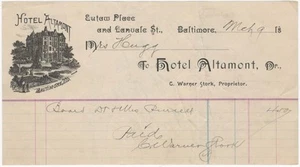 HOTEL ALTAMONT
BALTIMORE, MD.
Eutaw Place
and Lanvale St.,
Baltimore, Mch 9 18
Mrs Hugg
To Hotel Altamont, Dr.
C. Warner Stork, Proprietor.
Board
Paid
C Warner Stork